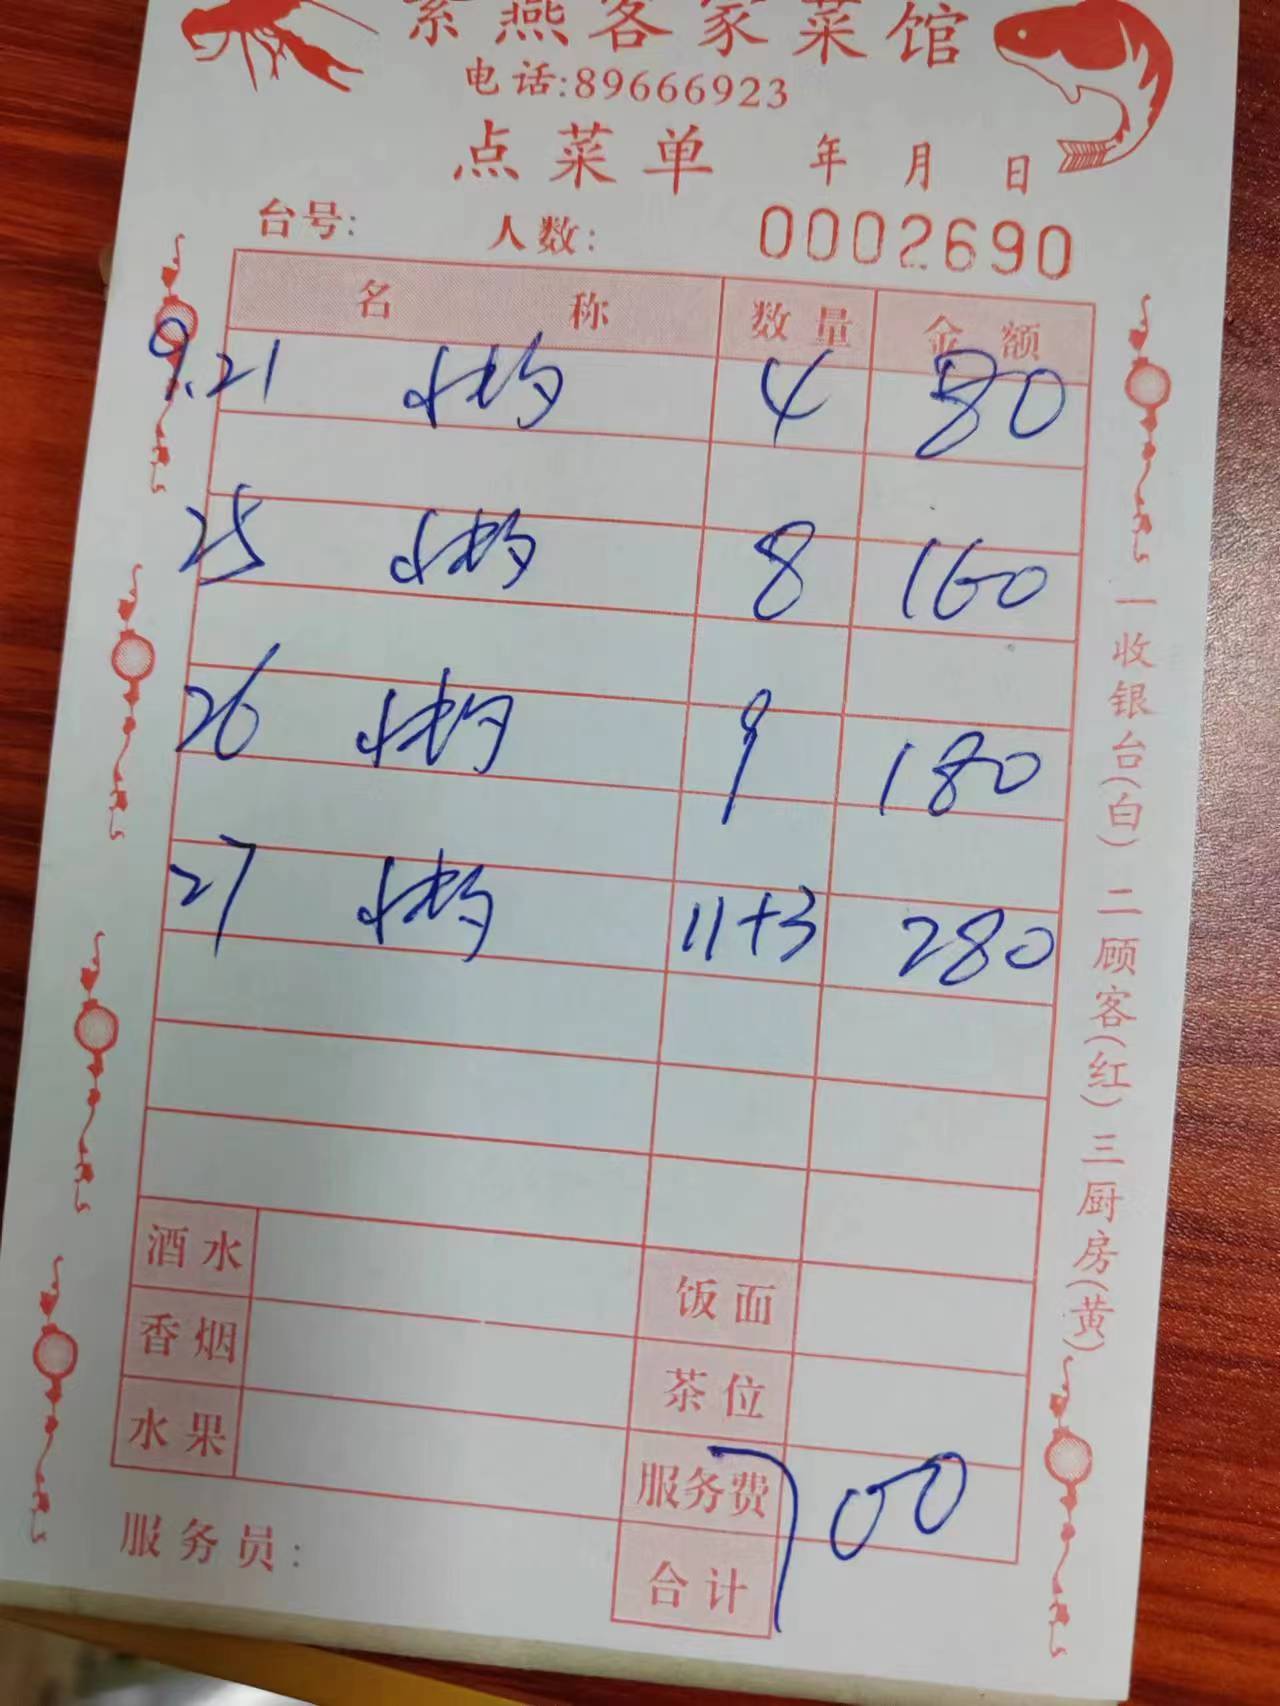 素燕客家菜馆
电话:89666923
点菜单 年 月 日
台号: 人数: 0002690
名 称 数量 金额
9.21 4 80
25 8 160
26 9 180
27 11+3 280
酒水 饭面
香烟 茶位
水果 服务费
合计 700
服务员:
一收银台(白) 二顾客(红) 三厨房(黄)